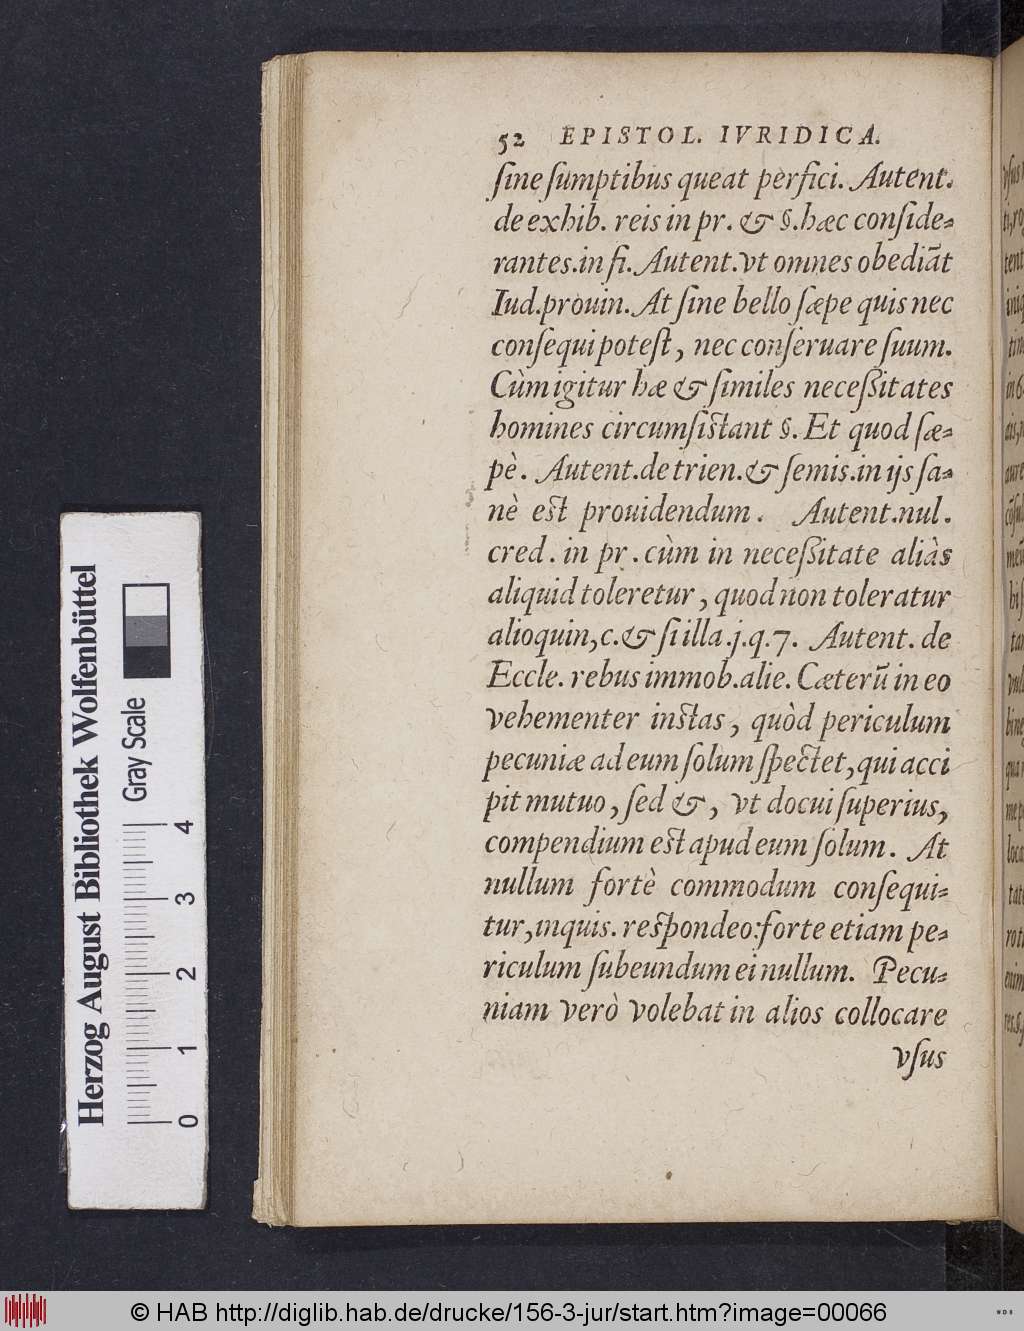 52 EPISTOL. IVRIDICA.
ſine ſumptibus queat perfici. Autent.
de exhib. reis in pr. & §. hæc conſide-
rantes. in fi. Autent. vt omnes obediāt
Iud. prouin. At ſine bello ſæpe quis nec
conſequi poteſt, nec conſeruare ſuum.
Cùm igitur hæ & ſimiles neceſſitates
homines circumſiſtant §. Et quod ſæ-
pè. Autent. de trien. & ſemis. in ijs ſa-
nè eſt prouidendum. Autent. nul.
cred. in pr. cùm in neceſſitate aliàs
aliquid toleretur, quod non toleratur
alioquin, c. & ſi illa. j. q. 7. Autent. de
Eccle. rebus immob. alie. Cæterū in eo
vehementer inſtas, quòd periculum
pecuniæ ad eum ſolum ſpectet, qui acci
pit mutuo, ſed &, vt docui ſuperius,
compendium eſt apud eum ſolum. At
nullum fortè commodum conſequi-
tur, inquis. reſpondeo: forte etiam pe-
riculum ſubeundum ei nullum. Pecu-
niam verò volebat in alios collocare
vſus
Herzog August Bibliothek Wolfenbüttel
Gray Scale
0 1 2 3 4
© HAB http://diglib.hab.de/drucke/156-3-jur/start.htm?image=00066